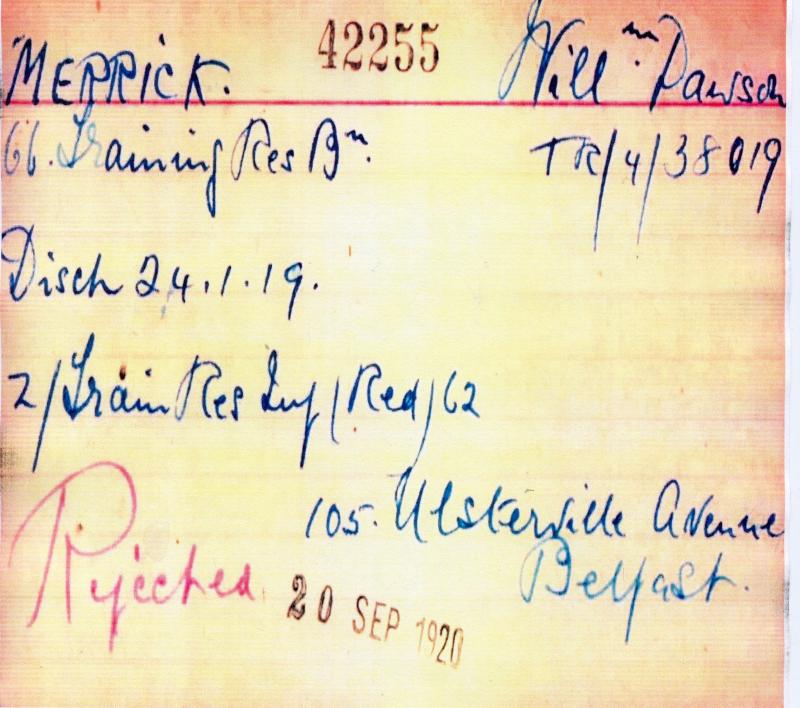 MERRICK. 42255 Willm. Dawson
66. Training Res Bn. TR/4/38019
Disch 24.1.19.
2/Train Res Inf (Red) 62
105. Ulsterville Avenue
Belfast.
Rejected 20 SEP 1920